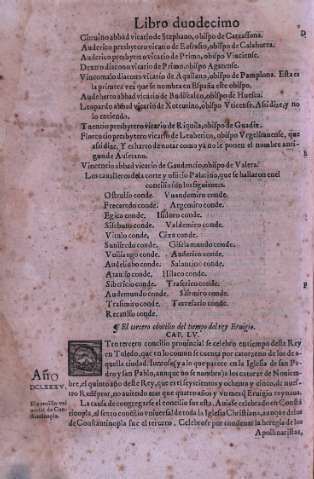 Libro duodecimo
Citruino abbad vicario de Stephano, obispo de Carcassona.
Auderico presbytero vicario de Eufrasio, obispo de Calahorra.
Auderico presbytero vicario de Primo, obispo Vinciense.
Dextro diacono vicario de Primo, obispo Agatense.
Vincomalo diacono vicario de Aquilano, obispo de Pamplona. Esta es
la primera vez que se nombra en España este obispo.
Audeberto abbad vicario de Budilaleo, obispo de Huesca.
Leopardo abbad vicario de Reccarino, obispo Vticense. Assi dize, y no
lo entiendo.
presbytero vicario de Riquila, obispo de Guadix.
Florencio presbytero vicario de Leuberico, obispo Vrgelitanense, que
assi dize, Y es harto de notar como ya no le ponen el nombre anti-
guo de Ausetano.
Vincencio abbad vicario de Gaudencio, obispo de Valera.
Los caualleros de la corte y officio Palatino, que se hallaron en el
concilio son los siguientes.
Ostrulfo conde. Vuandemiro conde.
Trecaredo conde. Argemiro conde.
Egica conde. Isidoro conde.
Sisebuto conde. Valdemiro conde.
Vitulo conde. Cixa conde.
Sunifredo conde. Gisclamundo conde.
conde. Auderico conde.
conde. Salamico conde.
Atanulfo conde. Hilaco conde.
Sibericio conde. Traserico conde.
Audemundo conde. Sisemiro conde.
Trasimiro conde. Torresario conde.
Recaulfo conde.
¶ El tercero concilio del tiempo del rey Eruigio.
CAP. LV.
OTro tercero concilio prouincial se celebro en tiempo deste Rey
en Toledo, que en lo comun se cuenta por catorzeno de los de a-
quella ciudad. Iuntose, a lo que parece en la Iglesia de san Pe-
dro y san Pablo, aunque no se nombra, a los catorze de Nouiem-
bre, el quinto año deste Rey, que era el seyscientos y ochenta y cinco, de nuestro
Redemptor, no auiendo mas que quatro años y vn mes q̃ Eruigio reynaua.
La causa de congregarse el concilio fue esta. Auiase celebrado en Constã-
tinopla, el sexto concilio vniuersal de toda la Iglesia Christiana, aunque de los
de Constantinopla fue el tercero. Celebrose por condenar la heregia de los
Apollinaristas,
Año
DCLXXXV.
El concilio vni-
uersal de Con-
stantinopla.